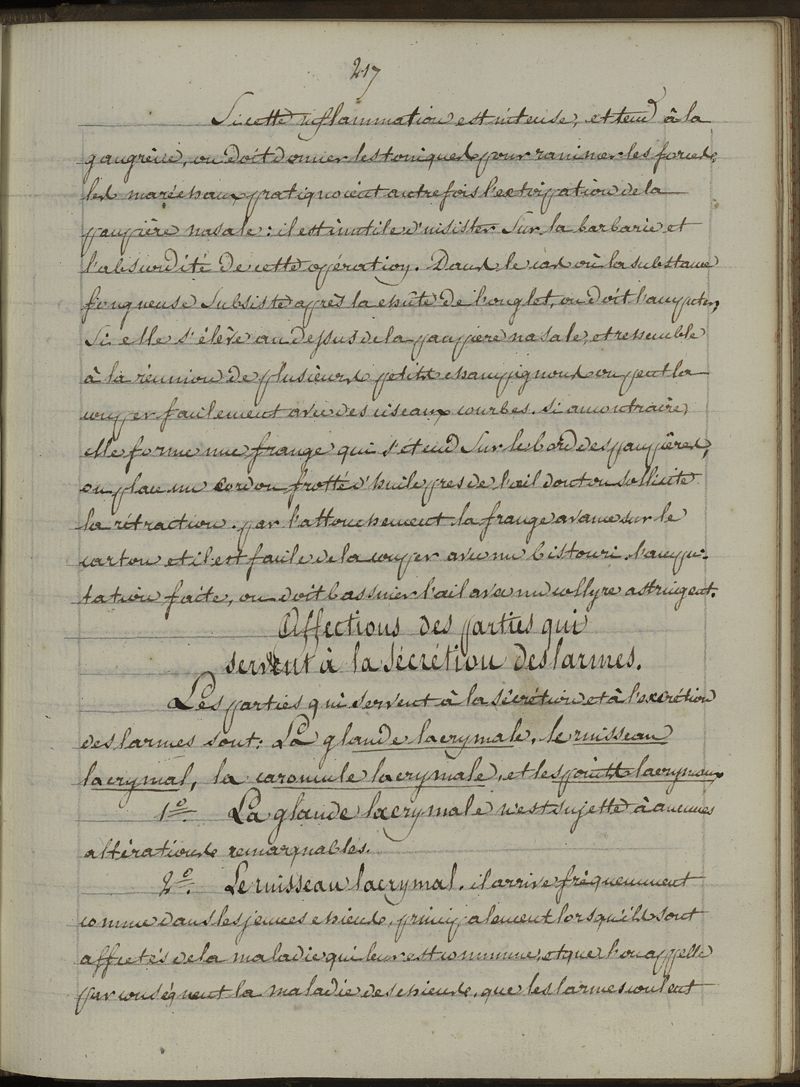 217
Si cette inflammation est intense, et tend à la
gangrène, on doit donner les toniques pour ranimer les forces,
les maréchaux pratiquoient autrefois l'extirpation de la
paupière nasale : il est inutile d'insister sur la barbarie et
l'absurdité de cette opération. Dans le cas où la substance
fongueuse subsiste après la chûte de l'onglet, on doit l'amputer,
Si elle s'élève au dessus de la paupiere nasale, et ressemble
à la réunion de plusieurs petits champignons on peut la
couper facilement avec des ciseaux courbes. si au contraire
elle forme une frange qui s'etend sur le bord des paupières,
on place un cordon frotté d'huile pres de l'œil dont on sollicite
la rétraction. par l'attouchement la frange avance sur le
carton et il est facile de la couper avec un bistouri. l'ampu-
tation faite, on doit bassiner l'œil avec un collyre astringent.
Affections des parties qui
servent à la sécrétion des larmes.
Les parties qui servent à la sécrétion et à l'excrétion
des larmes sont : La glande lacrymale, le ruisseau
lacrymal, la caroncule lacrymale, et les points lacrymaux
1º. La glande lacrymale n'est sujette à aucunes
altérations remarquables.
2º. Le ruisseau lacrymal. il arrive fréquemment
comme dans les jeunes chiens, principalement lorsqu'ils sont
affectés de la maladie qui leur est commune, et que l'on appelle
par conséquent la maladie des chiens, que les larmes coulent